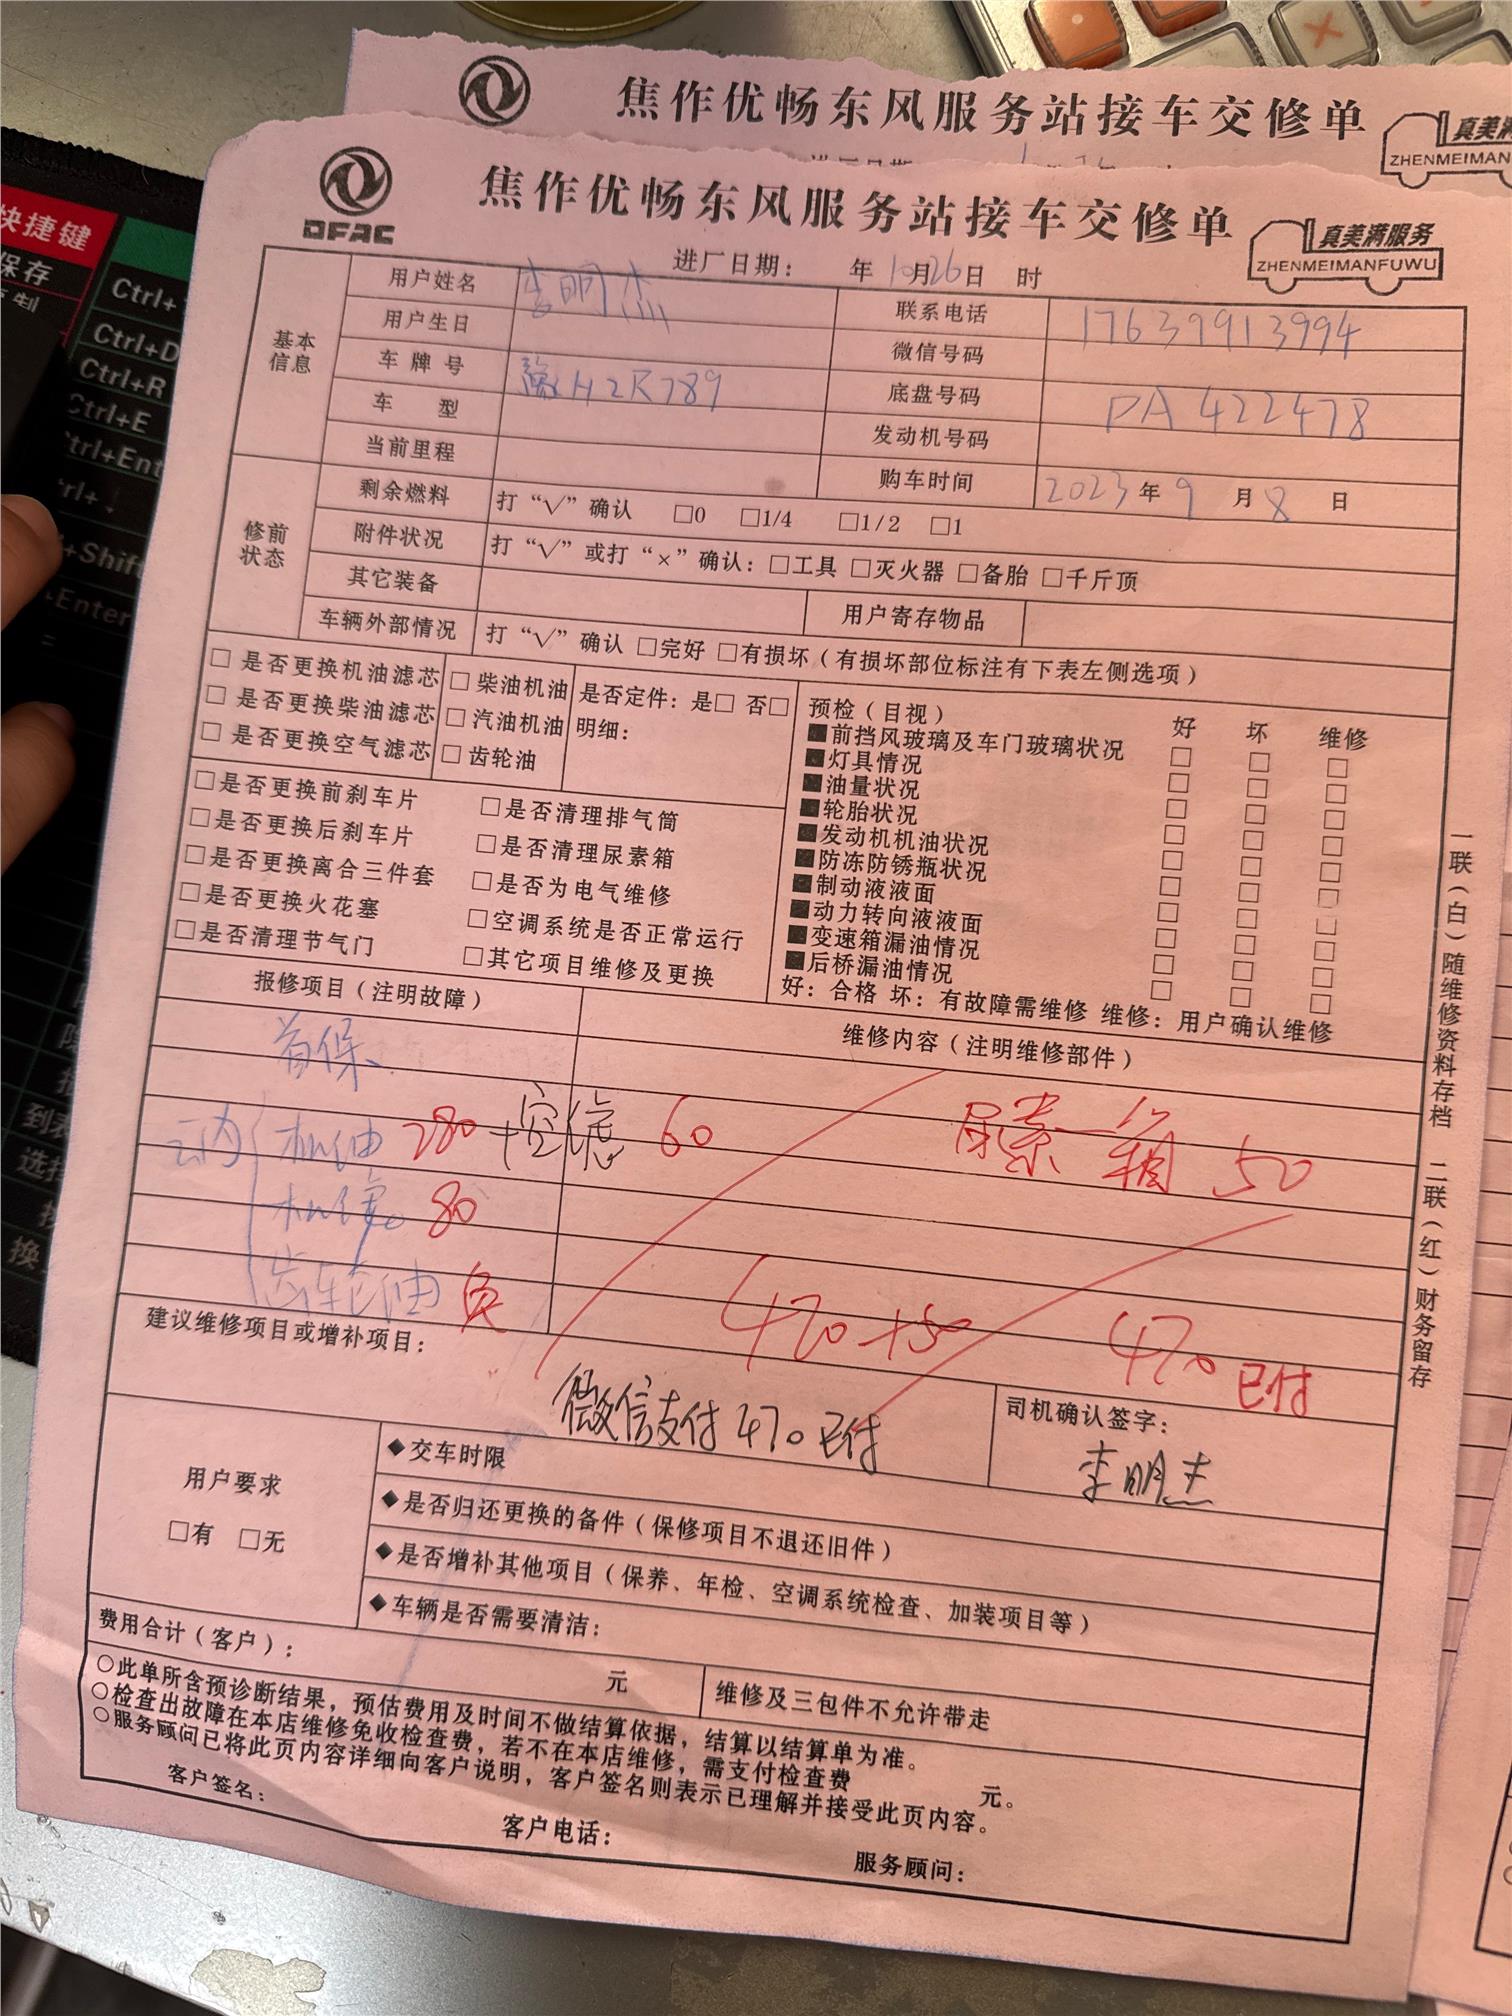 焦作优畅东风服务站接车交修单
真美满
ZHENMEIMAN
快捷键
保存
Ctrl+
Ctrl+D
Ctrl+R
Ctrl+E
DFAC
焦作优畅东风服务站接车交修单
真美满服务
ZHENMEIMANFUWU
进厂日期： 年10月26日 时
基本信息
用户姓名 李明杰 联系电话 17639913994
用户生日 微信号码
车牌号 豫H2R789 底盘号码 PA422478
车 型 发动机号码
当前里程 购车时间 2023年9月8日
修前状态
剩余燃料 打“√”确认 □0 □1/4 □1/2 □1
附件状况 打“√”或打“×”确认：□工具 □灭火器 □备胎 □千斤顶
其它装备 用户寄存物品
车辆外部情况 打“√”确认 □完好 □有损坏（有损坏部位标注有下表左侧选项）
□ 是否更换机油滤芯 □ 柴油机油 是否定件：是□ 否□
□ 是否更换柴油滤芯 □ 汽油机油 明细：
□ 是否更换空气滤芯 □ 齿轮油
□是否更换前刹车片 □是否清理排气筒
□是否更换后刹车片 □是否清理尿素箱
□是否更换离合三件套 □是否为电气维修
□是否更换火花塞 □空调系统是否正常运行
□是否清理节气门 □其它项目维修及更换
预检（目视） 好 坏 维修
■前挡风玻璃及车门玻璃状况 □ □ □
■灯具情况 □ □ □
■油量状况 □ □ □
■轮胎状况 □ □ □
■发动机机油状况 □ □ □
■防冻防锈瓶状况 □ □ □
■制动液液面 □ □ □
■动力转向液液面 □ □ □
■变速箱漏油情况 □ □ □
■后桥漏油情况 □ □ □
好：合格 坏：有故障需维修 维修：用户确认维修
报修项目（注明故障） 维修内容（注明维修部件）
首保、
云内 机油 280 +空滤 60 尿素一箱 50
机滤 80
齿轮油 免
470+50 470 已付
建议维修项目或增补项目：
微信支付470已付
司机确认签字：
李明杰
用户要求
□有 □无
◆交车时限
◆是否归还更换的备件（保修项目不退还旧件）
◆是否增补其他项目（保养、年检、空调系统检查、加装项目等）
◆车辆是否需要清洁：
费用合计（客户）： 元 维修及三包件不允许带走
○此单所含预诊断结果，预估费用及时间不做结算依据，结算以结算单为准。
○检查出故障在本店维修免收检查费，若不在本店维修，需支付检查费 元。
○服务顾问已将此页内容详细向客户说明，客户签名则表示已理解并接受此页内容。
客户签名： 客户电话： 服务顾问：
一联（白）随维修资料存档 二联（红）财务留存